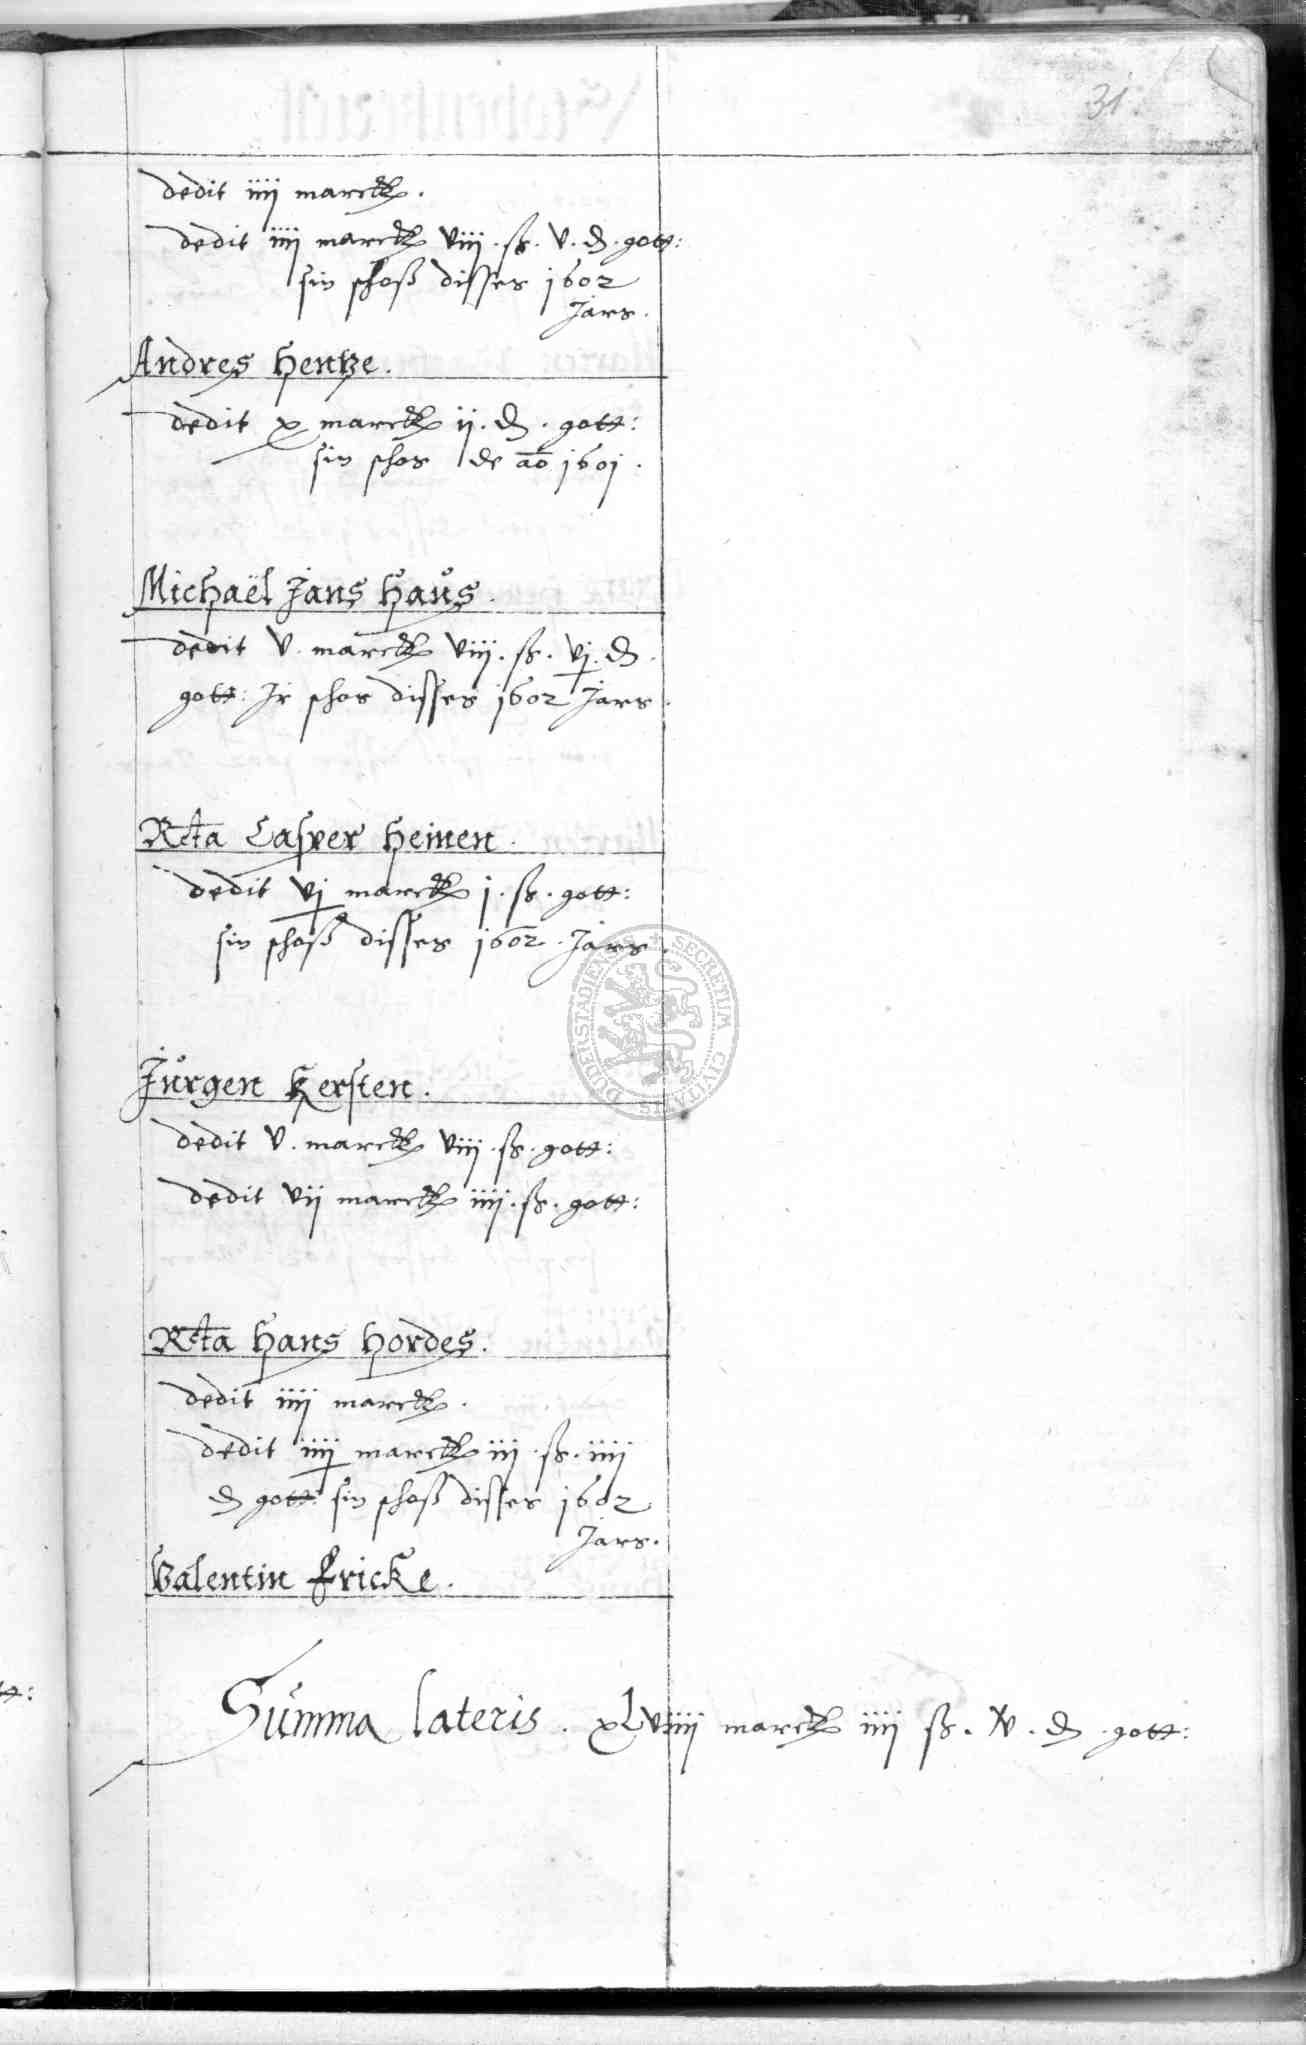 31
dedit iiij marck.
dedit iiij marck viij. ß. v. d. gott:
sin schoß disses 1602
Jars.
Andres Hentze.
dedit x marck ij. d. gott:
sin schos de ao 1601.
Michaël Jans Hauß.
dedit v. marck viij. ß. vj. d.
gott: Ir schos disses 1602 Jars.
Rcta Casper Heinen.
dedit vj marck j. ß. gott:
sin schoß disses 1602. Jars.
Jürgen Kersten.
dedit v. marck viij. ß. gott:
dedit vij marck iiij. ß. gott:
Rcta Hans Hordes.
dedit iiij marck.
dedit iiij marck iij. ß. iiij
d gott: sin schoß disses 1602
Jars.
Valentin Fricke.
Summa lateris. xLviiij marck iiij ß. v. d. gott:
SECRETUM CIVITATIS DUDERSTADIENSIS